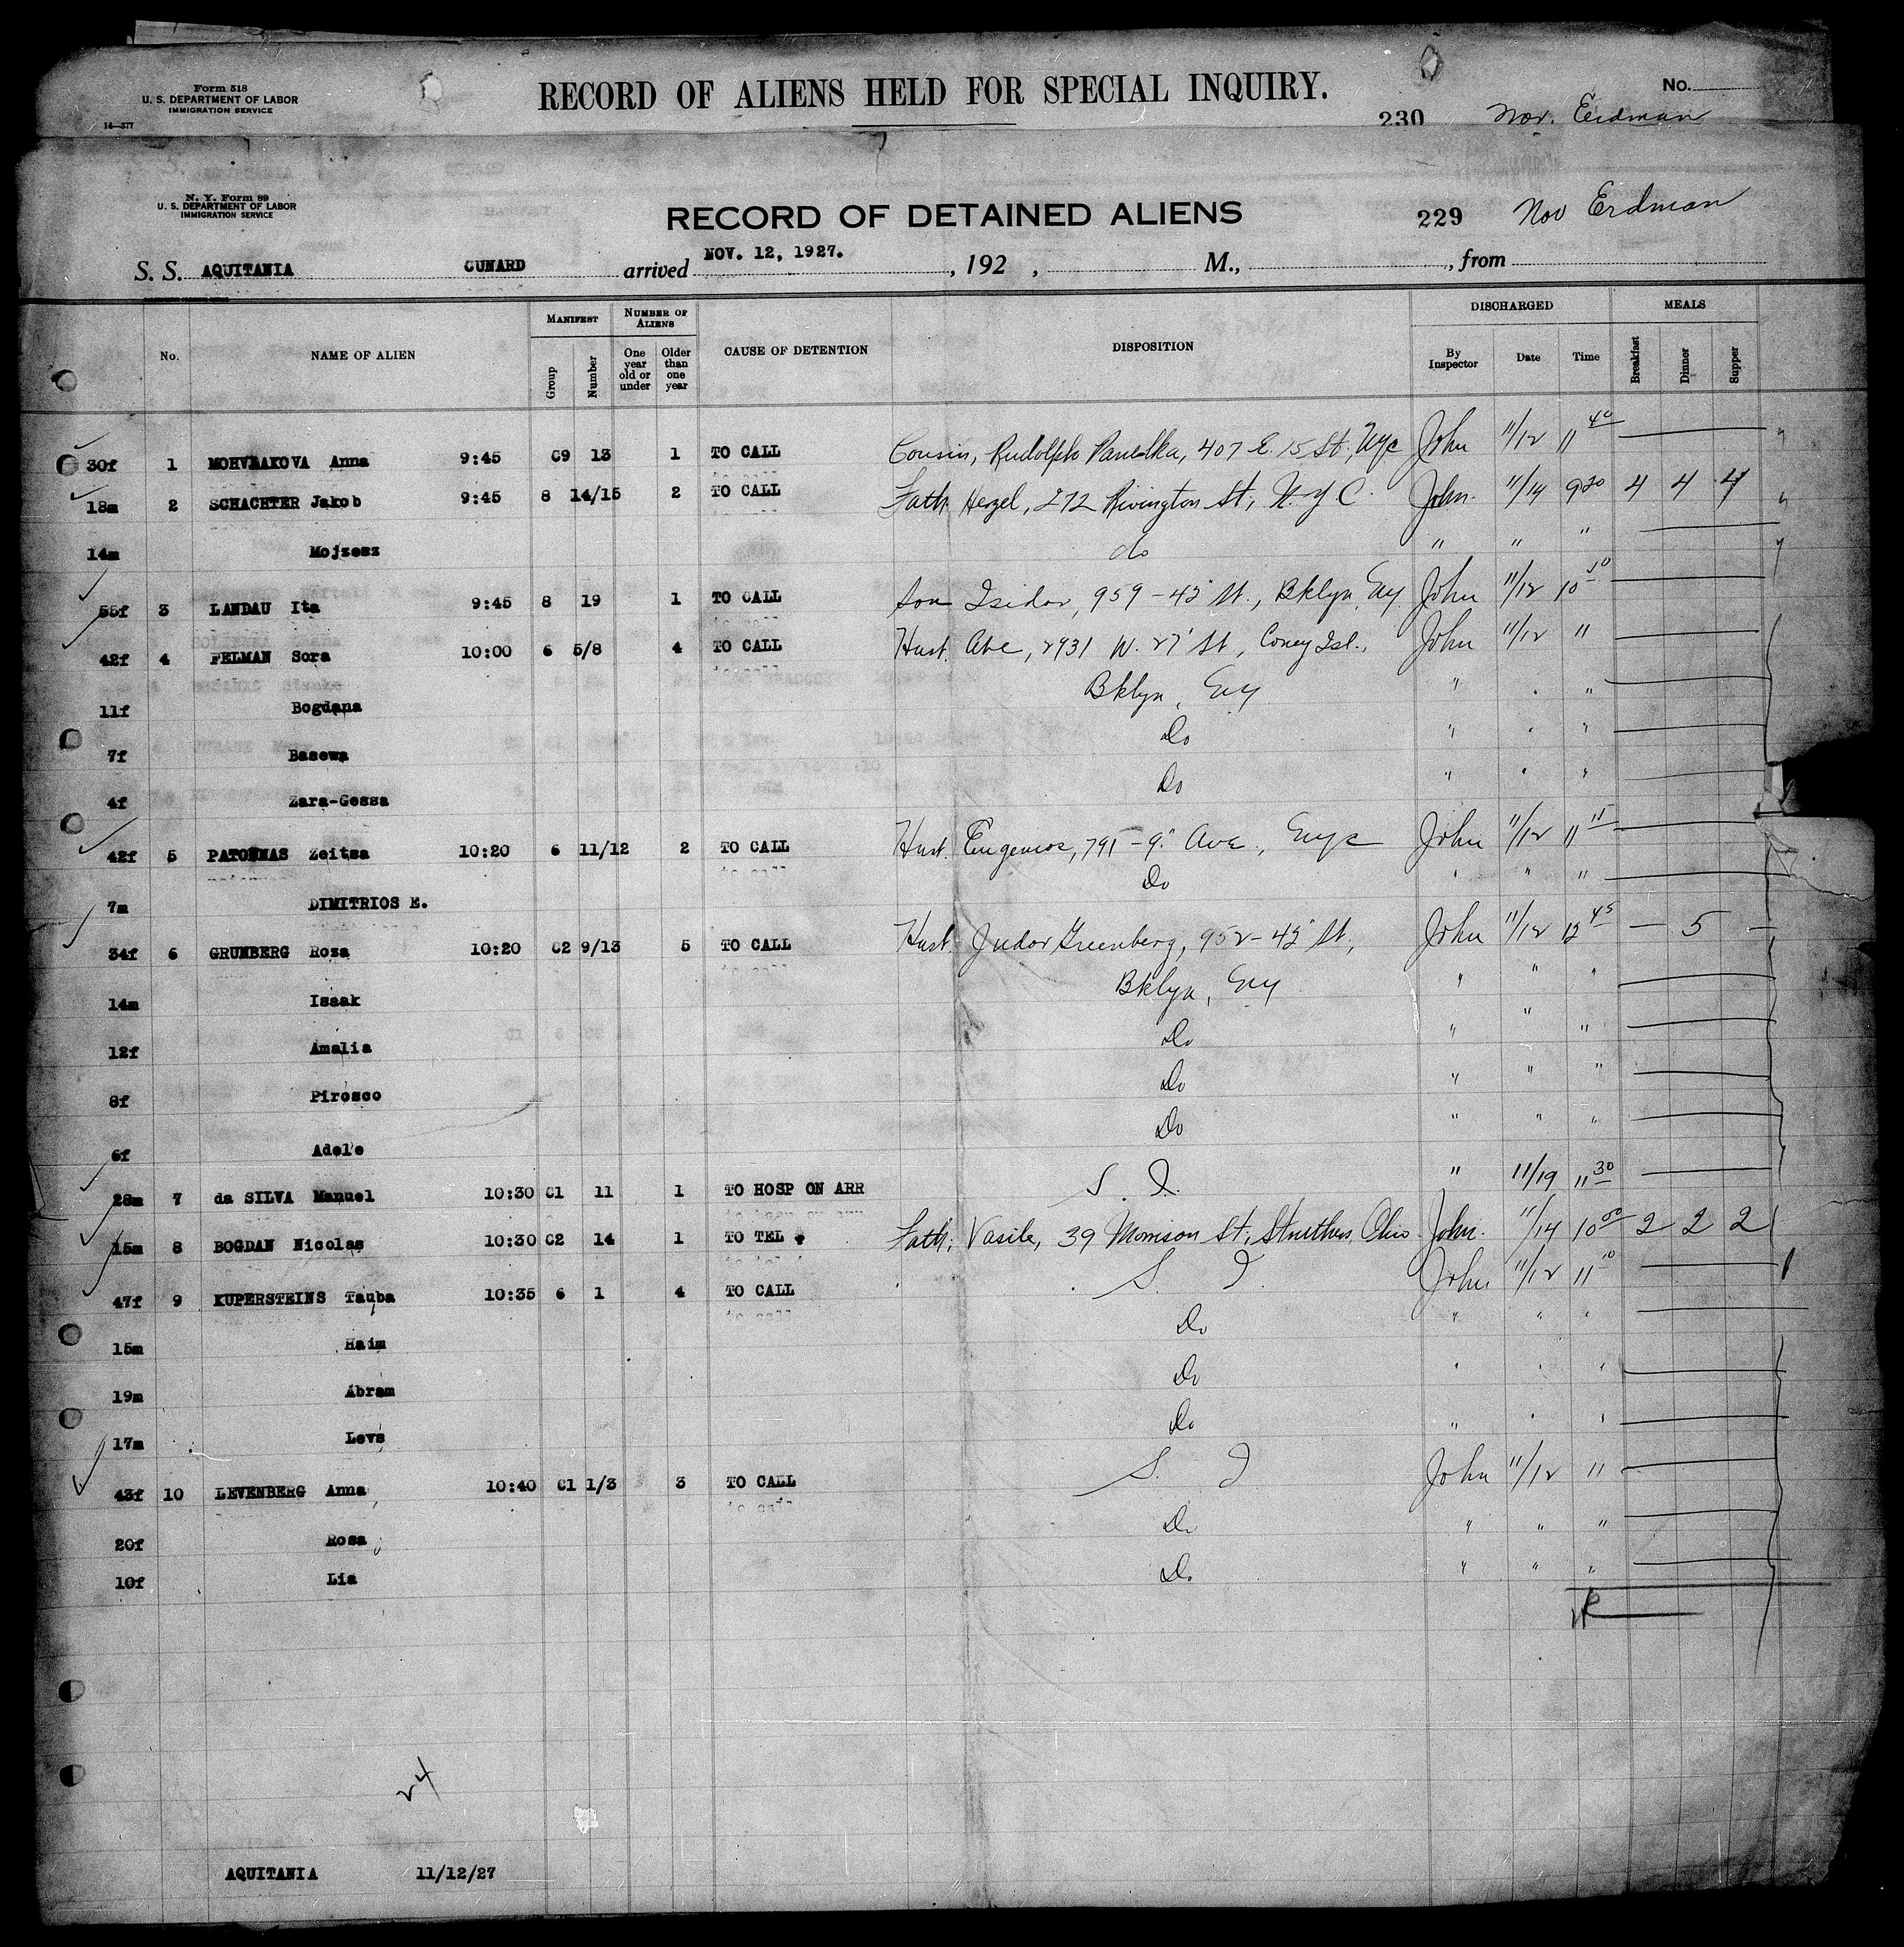 Form 518
U. S. DEPARTMENT OF LABOR
IMMIGRATION SERVICE
14—377
RECORD OF ALIENS HELD FOR SPECIAL INQUIRY.
No.
230 Nov. Erdman
N. Y. Form 89
U. S. DEPARTMENT OF LABOR
IMMIGRATION SERVICE
RECORD OF DETAINED ALIENS
229 Nov Erdman
S. S. AQUITANIA CUNARD arrived NOV. 12, 1927. , 192 , M., , from
No. NAME OF ALIEN MANIFEST Group Number NUMBER OF ALIENS One year old or under Older than one year CAUSE OF DETENTION DISPOSITION DISCHARGED By Inspector Date Time MEALS Breakfast Dinner Supper
30f 1 Anna 9:45 C9 13 1 TO CALL Cousin, Rudolph 407 E. 15 St., NYC John 11/12 11 40
18m 2 SCHACHTER Jakob 9:45 8 14/15 2 TO CALL Fath. Herzel, 272 Rivington St, N.Y C. John. 11/14 9 20 4 4 4
14m Mojzesz do " " "
55f 3 LANDAU Ita 9:45 8 19 1 TO CALL Son Isidor, 959 - 42" St., Bklyn, NY John 11/12 10 50
42f 4 FELMAN Sora 10:00 6 5/8 4 TO CALL Husb. Abe, 2931 W. 27' St., Coney Isl., John 11/12 "
11f Bogdana Bklyn, NY " " "
7f Basewa Do " " "
4f Zara-Gessa Do " " "
42f 5 PATOUMAS Zeitsa 10:20 6 11/12 2 TO CALL Husb. Eugenios, 791 - 9" Ave., NYC John 11/12 11 15
7m DIMITRIOS E. Do " " "
34f 6 GRUNBERG Rosa 10:20 C2 9/13 5 TO CALL Husb. Judor Greenberg, 952 - 42" St, John 11/12 12 45 — 5 —
14m Isaak Bklyn, NY " " "
12f Amalia Do " " "
8f Pirosco Do " " "
6f Adele Do " " "
28m 7 da SILVA Manuel 10:30 C1 11 1 TO HOSP ON ARR S. I. " 11/19 11 30
15m 8 BOGDAN Nicolas 10:30 C2 14 1 TO TEL Fath. Vasile, 39 Morrison St, Struthers, Ohio John. 11/14 10 00 2 2 2
47f 9 KUPERSTEINS Tauba 10:35 6 1 4 TO CALL S. I. John 11/12 11 10
15m Haim Do " " "
19m Abram Do " " "
17m Levs Do " " "
43f 10 LEVENBERG Anna 10:40 C1 1/3 3 TO CALL S. I John 11/12 11
20f Rosa Do " " "
10f Lia Do " " "
24
AQUITANIA 11/12/27